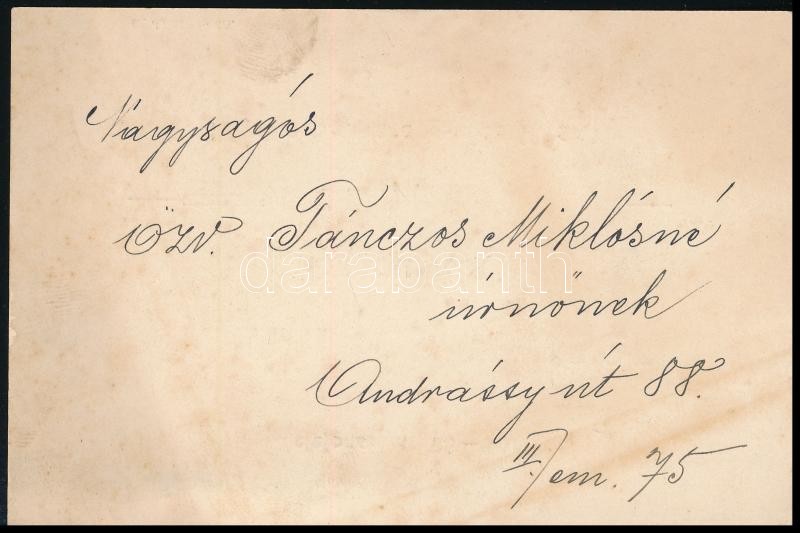 Nagyságos
özv. Tánczos Miklósné
darabanth
úrnőnek
Andrássy út 88.
III./em. 75